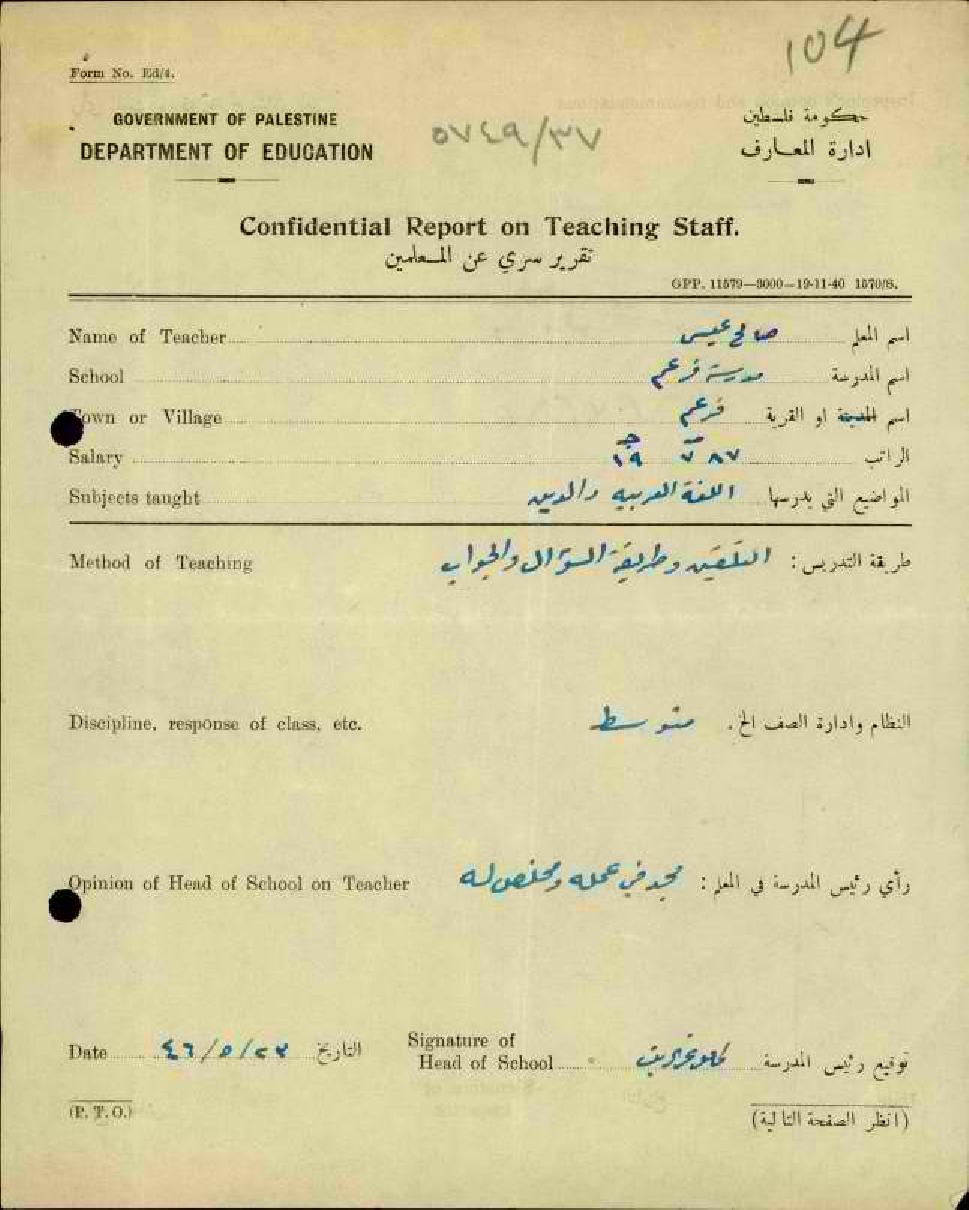 104
Form No. Ed/4.
GOVERNMENT OF PALESTINE
DEPARTMENT OF EDUCATION
٥٧٤٩/٣٧
حكومة فلسطين
ادارة المعارف
Confidential Report on Teaching Staff.
تقرير سري عن المعلمين
GPP. 11579—3000—19-11-40 1570/S.
Name of Teacher صالح عيسى اسم المعلم
School مدرسة فرعم اسم المدرسة
Town or Village فرعم اسم المدينة او القرية
Salary الراتب
Subjects taught اللغة العربيه والدين المواضيع التي يدرسها
Method of Teaching طريقة التدريس : التلقين وطريقة السؤال والجواب
Discipline, response of class, etc. النظام وادارة الصف الخ . متوسط
Opinion of Head of School on Teacher رأي رئيس المدرسة في المعلم : مجد في عمله ومخلص له
Date ٢٣/٥/٤٦ التاريخ
Signature of
Head of School توقيع رئيس المدرسة
(P. T. O.)
(انظر الصفحة التالية)